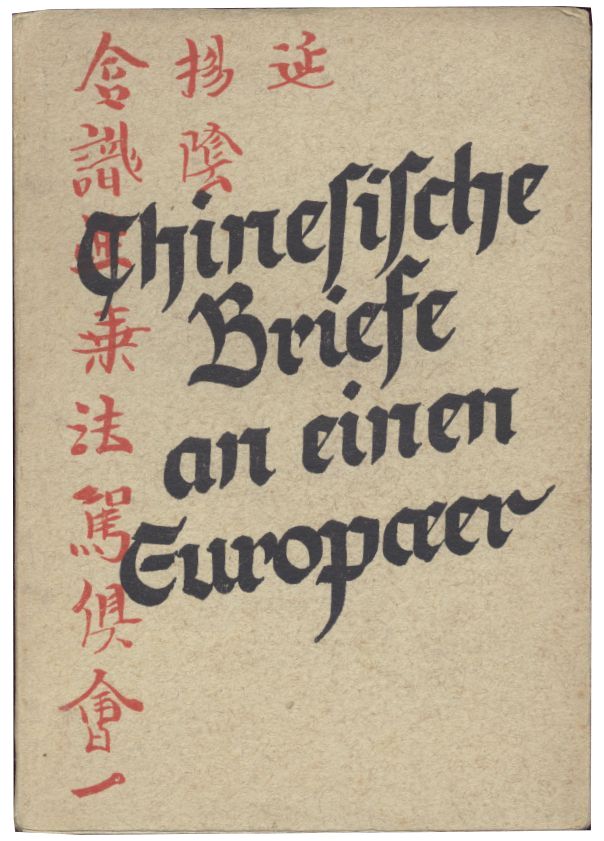 延
揚陰
含識乘法駕俱會一
Chinesische
Briefe
an einen
Europæer